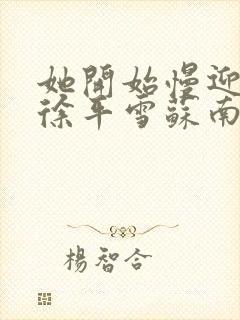 她開始慢迎
徐平雪蘇南
楊智合